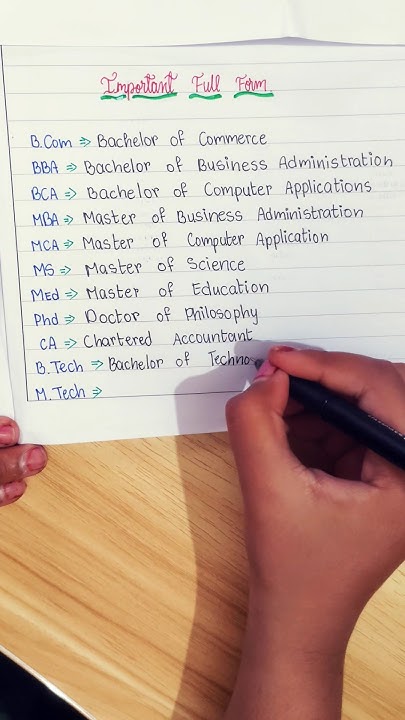 Important Full Form
B.Com ⇒ Bachelor of Commerce
BBA ⇒ Bachelor of Business Administration
BCA ⇒ Bachelor of Computer Applications
MBA ⇒ Master of Business Administration
MCA ⇒ Master of Computer Application
MS ⇒ Master of Science
MEd ⇒ Master of Education
Phd ⇒ Doctor of Philosophy
CA ⇒ Chartered Accountant
B.Tech ⇒ Bachelor of Techno
M.Tech ⇒